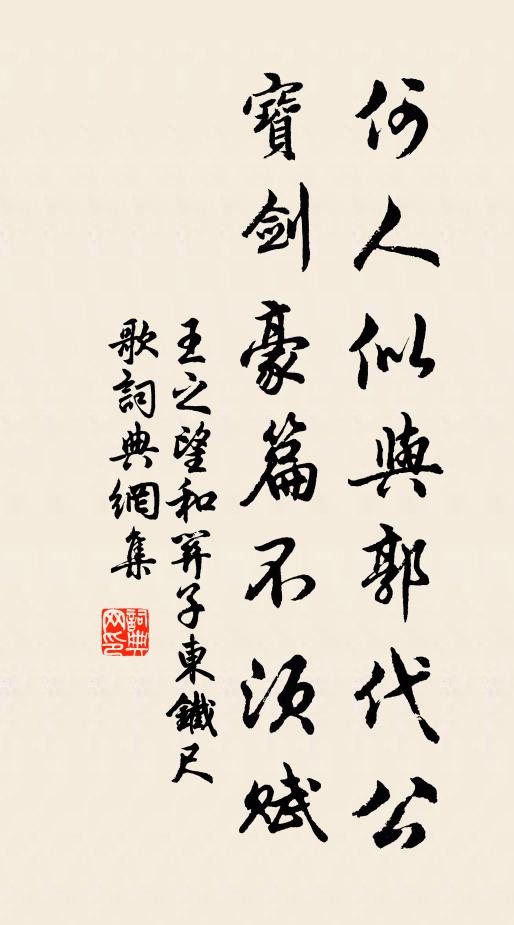 何人似與郭代公
寶劍豪篇不須賦
王之望和關子東鐵尺
歌詞典網集
詞典
网印